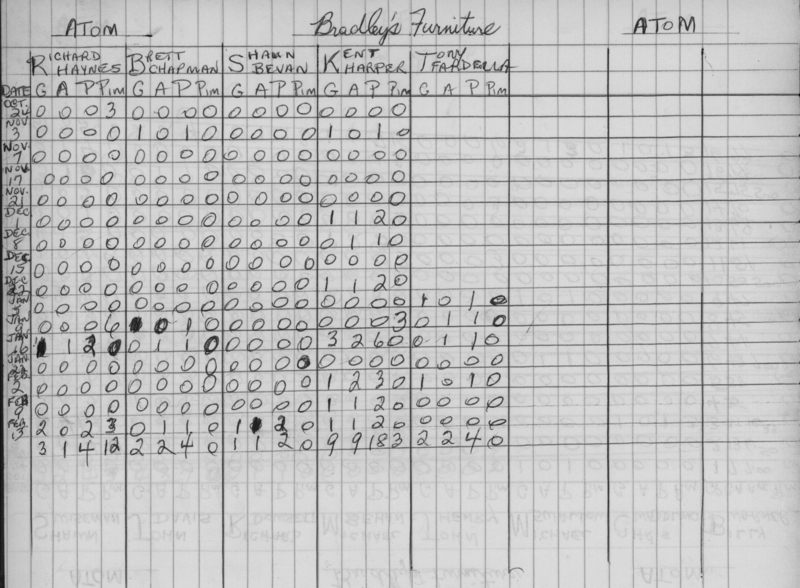 ATOM Bradley's Furniture ATOM
RICHARD HAYNES BRETT CHAPMAN SHAWN BEVAN KENT HARPER TONY FARDELLA
DATE G A P Pim G A P Pim G A P Pim G A P Pim G A P Pim
OCT. 24 0 0 0 3 0 0 0 0 0 0 0 0 0 0 0 0
NOV 3 0 0 0 0 1 0 1 0 0 0 0 0 1 0 1 0
NOV. 7 0 0 0 0 0 0 0 0 0 0 0 0 0 0 0 0
NOV. 17 0 0 0 0 0 0 0 0 0 0 0 0 0 0 0 0
NOV. 21 0 0 0 0 0 0 0 0 0 0 0 0 0 0 0 0
DEC. 1 0 0 0 0 0 0 0 0 0 0 0 0 1 1 2 0
DEC. 8 0 0 0 0 0 0 0 0 0 0 0 0 0 1 1 0
DEC 15 0 0 0 0 0 0 0 0 0 0 0 0 0 0 0 0
DEC 22 0 0 0 0 0 0 0 0 0 0 0 0 1 1 2 0
JAN 0 0 0 0 0 0 0 0 0 0 0 0 0 0 0 0 1 0 1 0
JAN 9 0 0 0 6 0 1 0 0 0 0 0 0 0 0 3 0 1 1 0
JAN 16 1 1 2 0 0 1 1 0 0 0 0 0 3 2 6 0 0 1 1 0
JAN 0 0 0 0 0 0 0 0 0 0 0 0 0 0 0 0 0 0 0 0
FEB. 2 0 0 0 0 0 0 0 0 0 0 0 0 1 2 3 0 1 0 1 0
FEB 9 0 0 0 0 0 0 0 0 0 0 0 0 1 1 2 0 0 0 0 0
FEB. 13 2 0 2 3 0 1 1 0 1 2 0 1 1 2 0 0 0 0 0
3 1 4 12 2 2 4 0 1 1 2 0 9 9 18 3 2 2 4 0